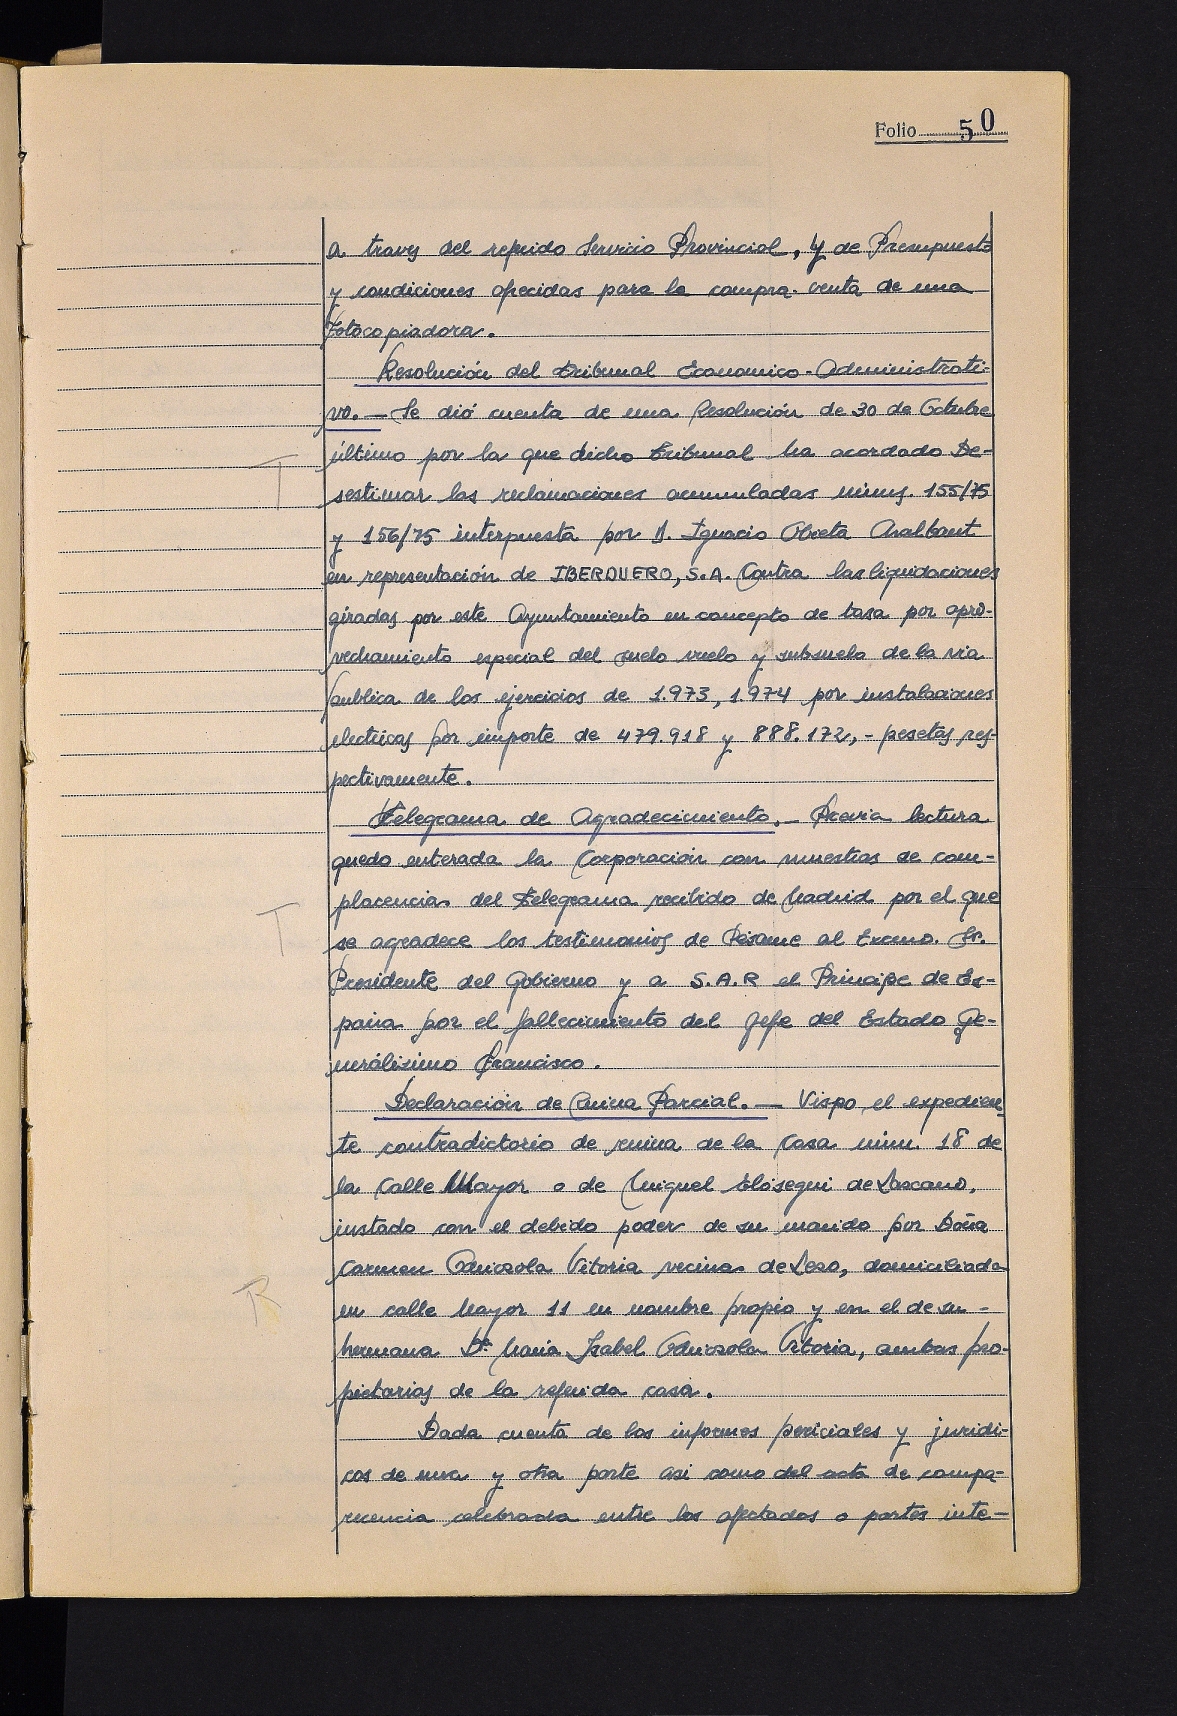 Folio 50
a traves del referido Servicio Provincial, y de Presupuesto
y condiciones ofrecidas para la compra-venta de una
Fotocopiadora.
Resolución del Tribunal Economico-Administrati-
vo. — Se dió cuenta de una Resolución de 30 de Octubre
último por la que dicho Tribunal ha acordado De-
sestimar las reclamaciones acumuladas núms. 155/75
T
y 156/75 interpuesta por D. Ignacio Obieta
en representación de IBERDUERO, S.A. Contra las liquidaciones
giradas por este Ayuntamiento en concepto de tasa por apro-
vechamiento especial del suelo vuelo y subsuelo de la via
publica de los ejercicios de 1.973, 1.974 por instalaciones
electricas por importe de 479.918 y 888.172,- pesetas res-
pectivamente.
Telegrama de Agradecimiento. — Previa lectura
quedo enterada la Corporación con muestras de com-
placencias del Telegrama recibido de Madrid por el que
T
se agradece los testimonios de Pésame al Excmo. Sr.
Presidente del Gobierno y a S.A.R el Principe de Es-
paña por el fallecimiento del Jefe del Estado Ge-
neralisimo Francisco.
Declaración de Ruina Parcial. — Vispo el expedien-
te contradictorio de ruina de la Casa núm. 18 de
la Calle Mayor o de Miguel Elósegui de Lascano,
instado con el debido poder de su marido por Doña
Carmen Odriozola Vitoria vecinas de Lezo, domiciliada
R
en calle Mayor 11 en nombre propio y en el de su -
hermana Dª Maria Isabel Odriozola Vitoria, ambas pro-
pietarias de la referida casa.
Dada cuenta de los informes periciales y juridi-
cos de una y otra parte asi como del acta de compa-
recencia celebrada entre los afectados o partes inte-